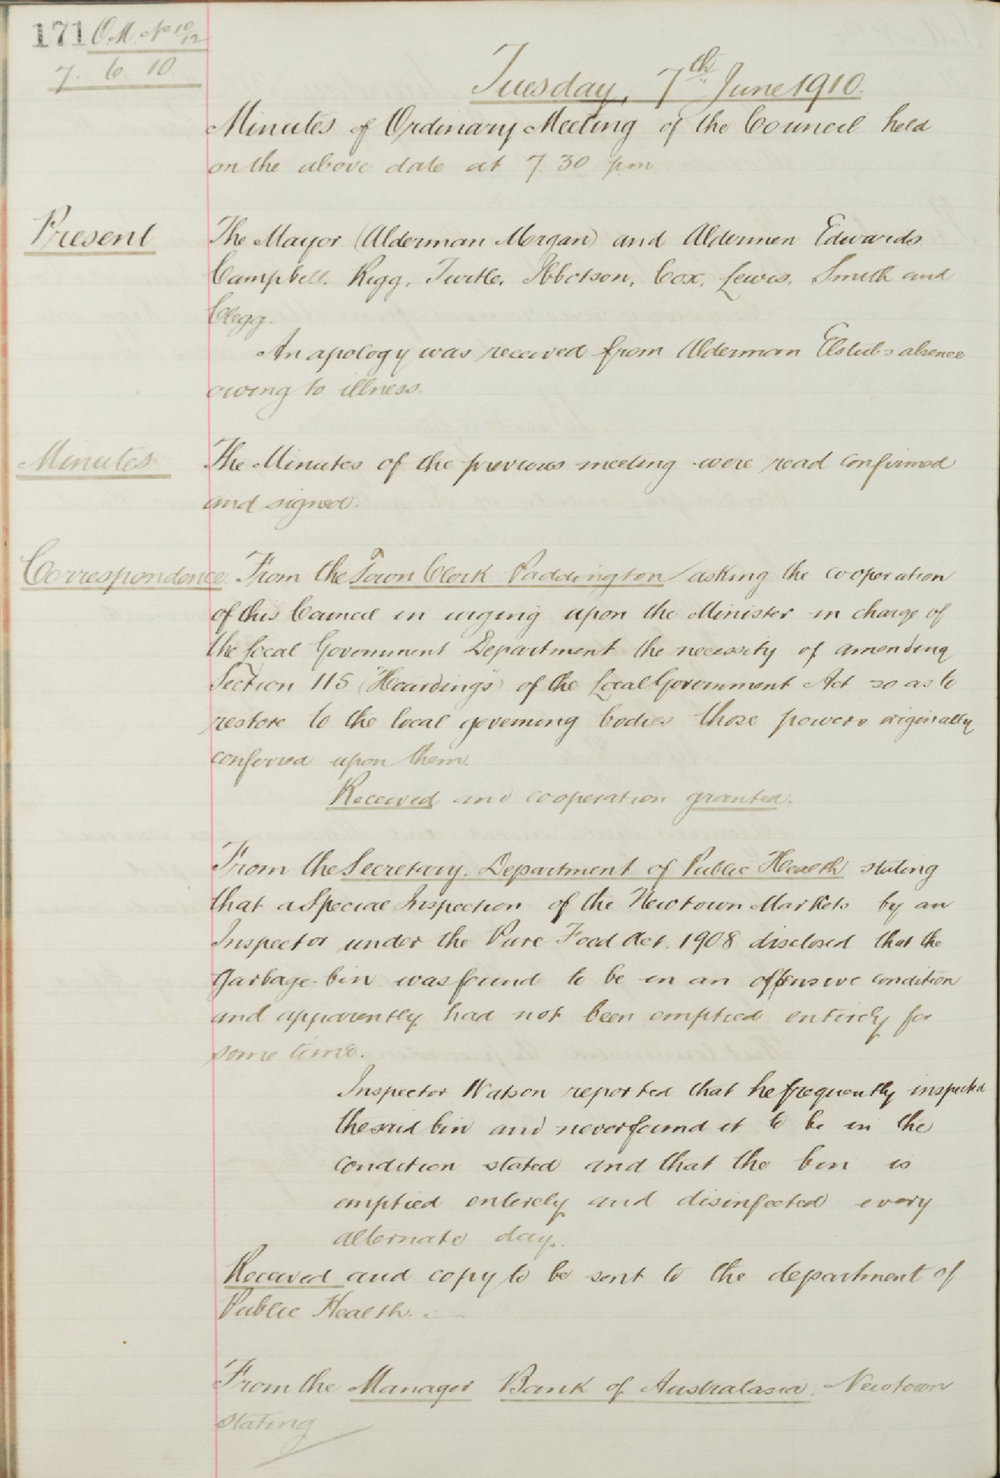 171 O.M. No 10/12
7. 6. 10.
Tuesday, 7th June 1910.
Minutes of Ordinary Meeting of the Council held
on the above date at 7.30 pm
Present
The Mayor (Alderman Morgan) and Aldermen Edwards
Campbell, Rigg, Turtle, Ibbotson, Cox, Lewis, Smith and
Clegg.
An apology was received from Alderman Elstub's absence
owing to illness.
Minutes
The Minutes of the previous meeting were read confirmed
and signed.
Correspondence. From the Town Clerk Paddington asking the cooperation
of this Council in urging upon the Minister in charge of
the Local Government Department the necessity of amending
Section 115 ("Hoardings") of the Local Government Act so as to
restore to the local governing bodies those powers originally
conferred upon them.
Received and cooperation granted.
From the Secretary. Department of Public Health stating
that a Special Inspection of the Newtown Markets by an
Inspector under the Pure Food Act. 1908 disclosed that the
garbage-bin was found to be in an offensive condition
and apparently had not been emptied entirely for
some time.
Inspector Watson reported that he frequently inspected
the said bin and never found it to be in the
condition stated and that the bin is
emptied entirely and disinfected every
alternate day.
Received and copy to be sent to the department of
Public Health.
From the Manager Bank of Australasia. Newtown
stating